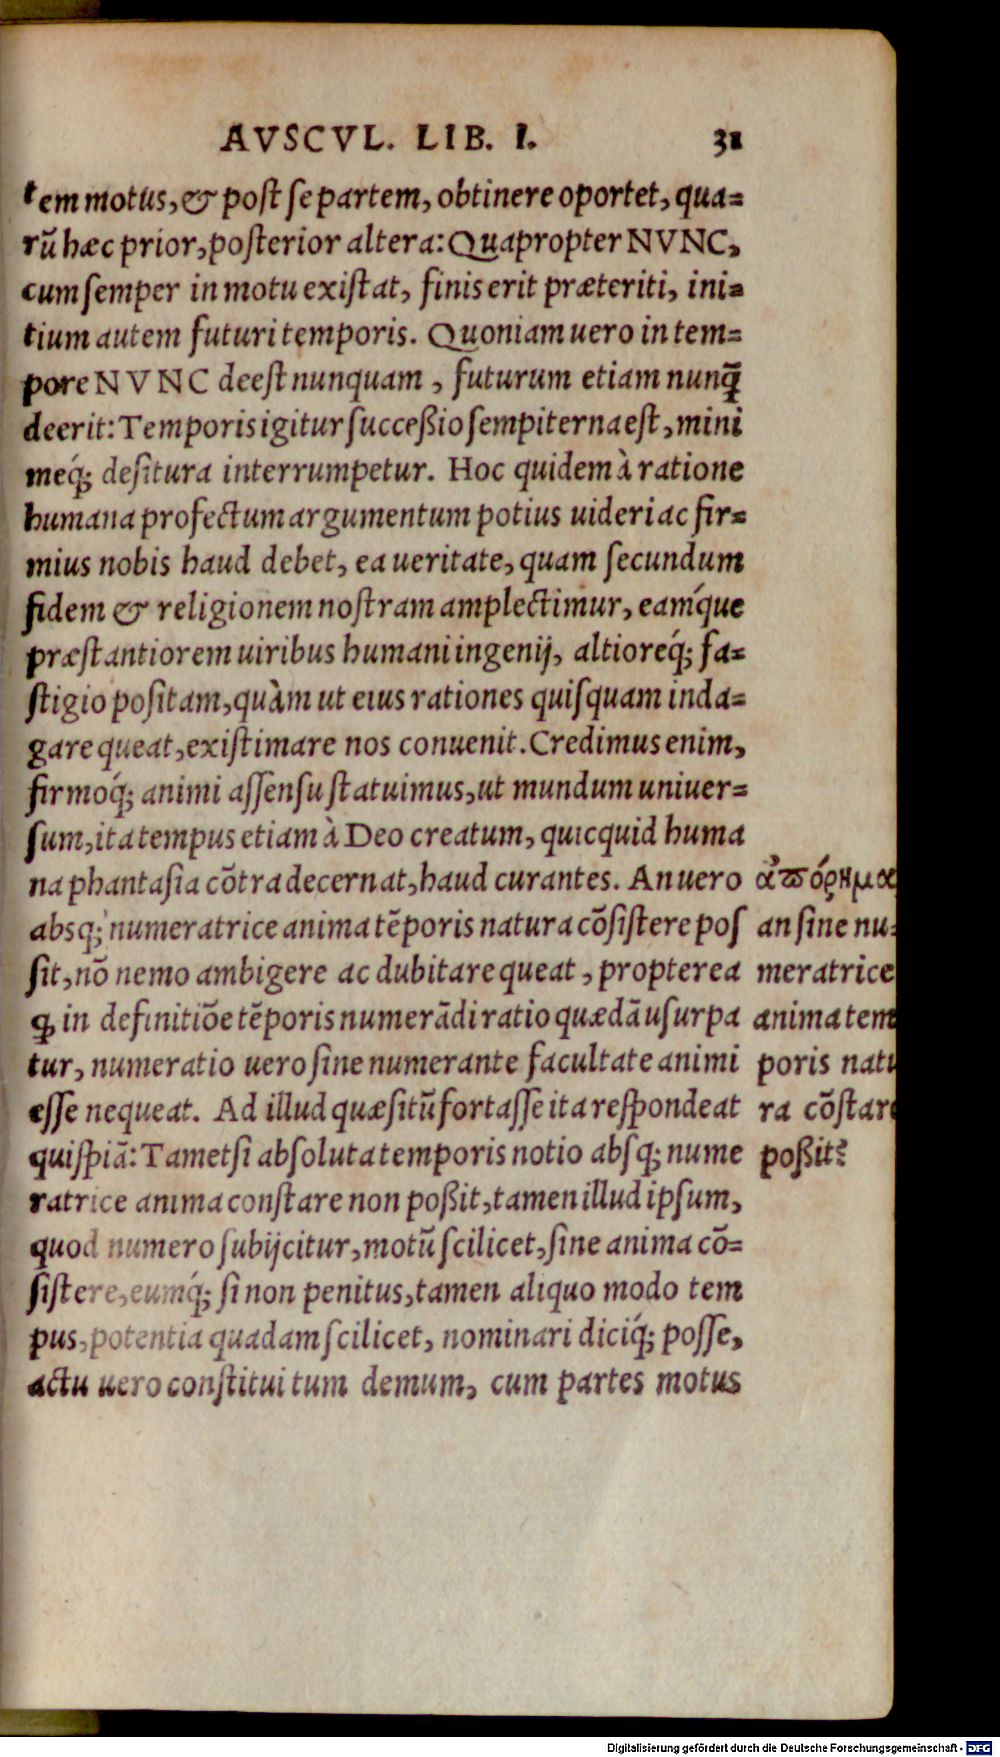 AVSCVL. LIB. I. 31
tem motus, & post se partem, obtinere oportet, qua=
rũ hæc prior, posterior altera: Quapropter NVNC,
cum semper in motu existat, finis erit præteriti, ini=
tium autem futuri temporis. Quoniam uero in tem=
pore NVNC deest nunquam, futurum etiam nunq̃
deerit: Temporis igitur successio sempiterna est, mini
meq́; desitura interrumpetur. Hoc quidem à ratione
humana profectum argumentum potius uideri ac fir=
mius nobis haud debet, ea ueritate, quam secundum
fidem & religionem nostram amplectimur, eamq́ue
præstantiorem uiribus humani ingenij, altioreq́; fa=
stigio positam, quàm ut eius rationes quisquam inda=
gare queat, existimare nos conuenit. Credimus enim,
firmoq́; animi assensu statuimus, ut mundum uniuer=
sum, ita tempus etiam à Deo creatum, quicquid huma
na phantasia cõtra decernat, haud curantes. An uero
absq; numeratrice anima tẽporis natura cõsistere pos
sit, nõ nemo ambigere ac dubitare queat, propterea
q̃ in definitiõe tẽporis numerãdi ratio quædã usurpa
tur, numeratio uero sine numerante facultate animi
esse nequeat. Ad illud quæsitũ fortasse ita respondeat
quispiã: Tametsi absoluta temporis notio absq; nume
ratrice anima constare non possit, tamen illud ipsum,
quod numero subijcitur, motũ scilicet, sine anima cõ=
sistere, eumq́; si non penitus, tamen aliquo modo tem
pus, potentia quadam scilicet, nominari diciq́; posse,
actu uero constitui tum demum, cum partes motus
ἀπόρημα
an sine nu=
meratrice
anima tem
poris natu
ra cõstare
possit?
Digitalisierung gefördert durch die Deutsche Forschungsgemeinschaft - DFG